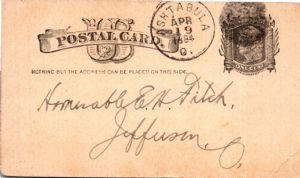 POSTAL CARD.
ASHTABULA
APR
19
1884
O.
ONE CENT
NOTHING BUT THE ADDRESS CAN BE PLACED ON THIS SIDE.
Honorable E. H. Fitch,
Jefferson, O.